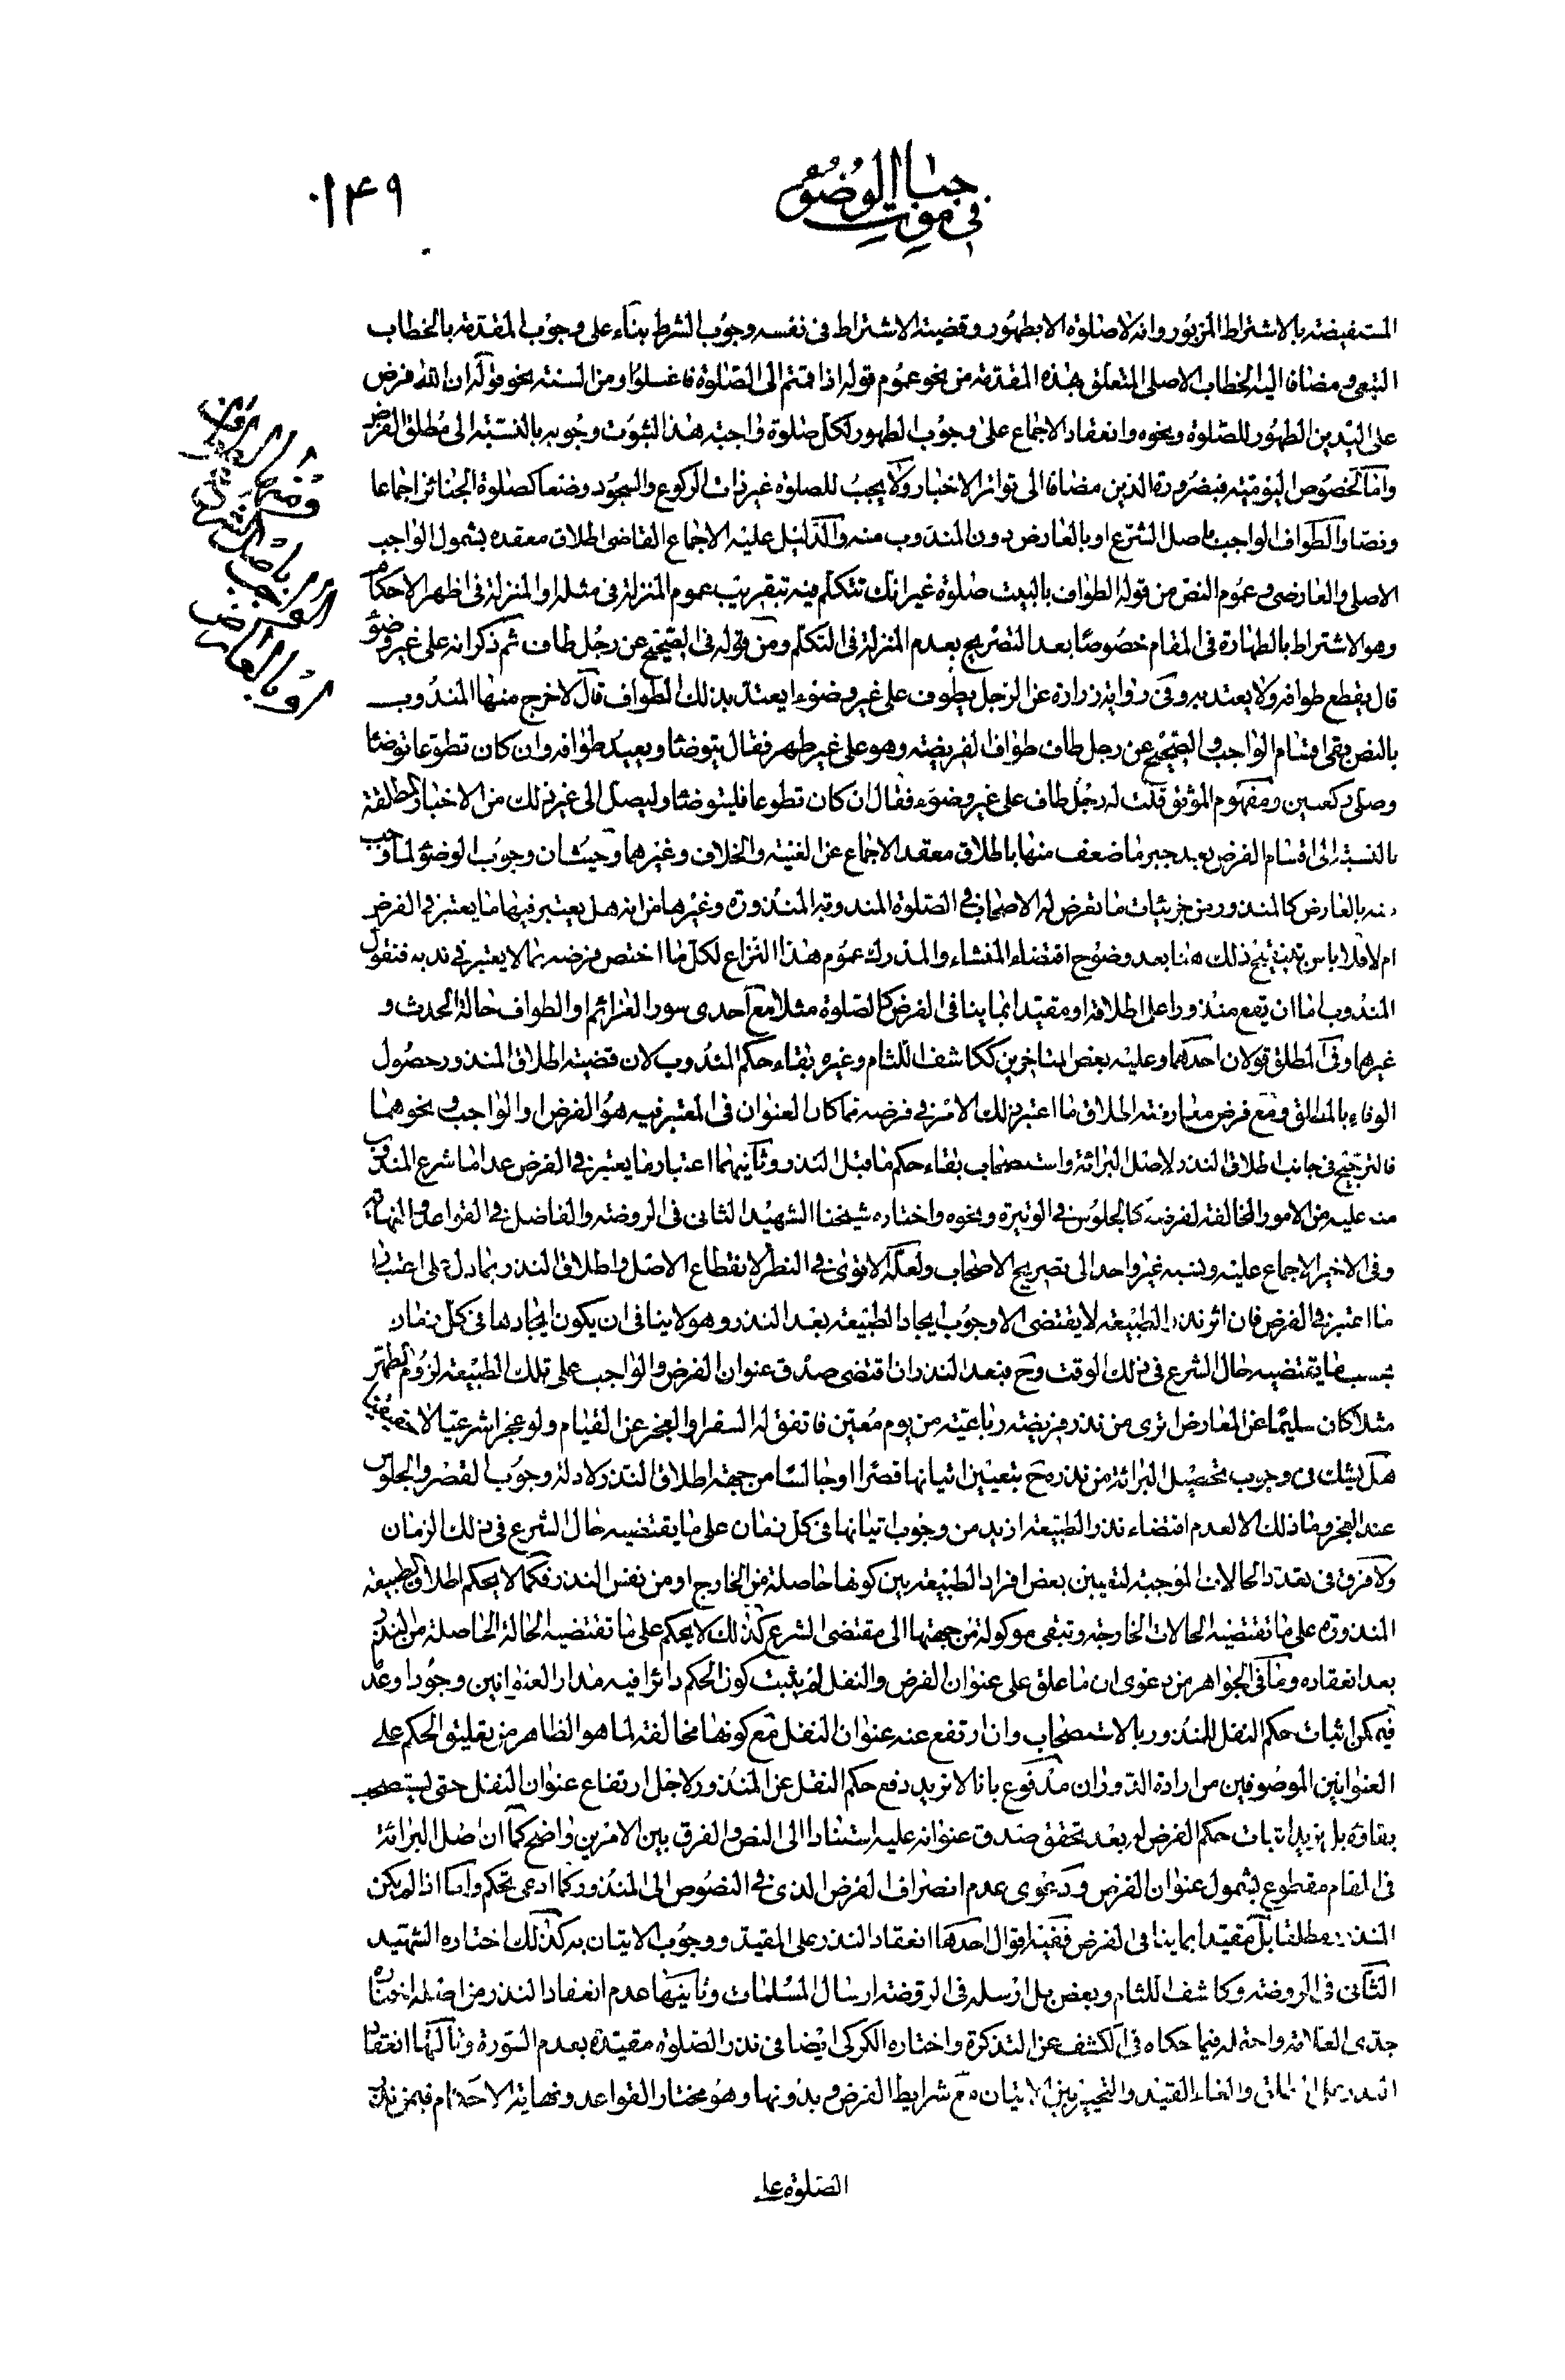 في موجبات الوضوء
١٤٩
المستفيضة بالاشتراط المزبور وانه لا صلوة الا بطهور وقضية الاشتراط فى نفسه وجوب الشرط بناء على وجوب المقدمة بالخطاب
التبعى مضافا اليه الخطاب الاصلى المتعلق بهذه المقدمة من نحو عموم قوله اذا قمتم الى الصلوة فاغسلوا ومن السنة نحو قوله ان الله فرض
على اليدين الطهور للصلوة ونحوه وانعقاد الاجماع على وجوب الطهور لكل صلوة واجبة هذا لثبوت وجوبه بالنسبة الى مطلق الفرض
واما لخصوص اليومية فبضرورة الدين مضافا الى تواتر الاخبار ولا يجب للصلوة غير ذات الركوع والسجود وضعا كصلوة الجنائز اجماعا
ونصا والطواف الواجب باصل الشرع او بالعارض دون المندوب منه والدليل عليه الاجماع القاضى اطلاق معقده بشمول الواجب
الاصلى والعارضى وعموم النص من قوله الطواف بالبيت صلوة غير انك تتكلم فيه تبقريب عموم المنزلة فى مثله او المنزلة فى اظهر الاحكام
وهو الاشتراط بالطهارة فى المقام خصوصا بعد التصريح بعدم المنزلة فى التكلم ومن قوله فى الصحيح عن رجل طاف ثم ذكر انه على غير وضوء
قال يقطع طوافه ولا يعتد به وفى رواية زرارة عن الرجل يطوف على غير وضوء ايعتد بذلك الطواف قال لا خرج منها المندوب
بالنص وبقى اقسام الواجب وفى الصحيح عن رجل طاف طواف الفريضة وهو على غير طهر فقال يتوضأ ويعيد طوافه وان كان تطوعا توضأ
وصلى ركعتين ومفهوم الموثق قلت له رجل طاف على غير وضوء فقال ان كان تطوعا فليتوضأ وليصل الى غير ذلك من الاخبار المطلقة
بالنسبة الى اقسام الفرض بعد جبر ما ضعف منها باطلاق معقد الاجماع عن الغنية والخلاف وغيرهما وحيث ان وجوب الوضوء لما وجب
منه بالعارض كالمنذور من جزئيات ما تعرض له الاصحاب فى الصلوة المندوبة المنذورة وغيرها من انه هل يعتبر فيها ما يعتبر فى الفرض
ام لا فلا باس بتنقيح ذلك هنا بعد وضوح اقتضاء المنشاء والمدرك عموم هذا النزاع لكل ما اختص فرضه بما لا يعتبر فى ندبه فنقول
المندوب اما ان يقع منذورا على اطلاقه او مقيدا بما ينافى الفرض كالصلوة مثلا مع احدى سور العزائم او الطواف حالة الحدث و
غيرهما وفى المطلق قولان احدهما وعليه بعض المتاخرين ككاشف اللثام وغيره بقاء حكم المندوب لان قضية اطلاق المنذور حصول
الوفاء بالمطلق ومع فرض معارضته اطلاق ما اعتبر ذلك الامر فى فرضه مما كان العنوان فى المعتبر فيه هو الفرض او الواجب ونحوهما
فالترجيح فى جانب اطلاق النذر لاصل البرائة واستصحاب بقاء حكم ما قبل النذر وثانيهما اعتبار ما يعتبر فى الفرض عدا ما شرع المندوب
منه عليه من الامور المخالفة لفرضه كالجلوس فى الوتيرة ونحوه واختاره شيخنا الشهيد الثانى فى الروضة والفاضل فى القواعد والنهاية
وفى الاخير الاجماع عليه ونسبه غير واحد الى تصريح الاصحاب ولعله الاقوى فى النظر لانقطاع الاصل واطلاق النذر بما دل على اعتبار
ما اعتبر فى الفرض فان اثر نذر الطبيعة لا يقتضى الا وجوب ايجاد الطبيعة بعد النذر وهو لا ينافى ان يكون ايجادها فى كل زمان
بحسب ما يقتضيه حال الشرع فى ذلك الوقت وح فبعد النذر ان اقتضى صدق عنوان الفرض والواجب على تلك الطبيعة لزوم التطهر
مثلا كان سليما عن المعارض اترى من نذر فريضة رباعية من يوم معين فاتفق له السفر او العجز عن القيام ولو عجزا شرعيا لا
هل يشك فى وجوب تحصيل البرائة من نذره ح بتعيين اتيانها قصرا او جالسا من جهة اطلاق النذر لادلة وجوب القصر والجلوس
عند العجز وما ذلك الا لعدم اقتضاء نذر الطبيعة ازيد من وجوب اتيانها فى كل زمان على ما يقتضيه حال الشرع فى ذلك الزمان
ولا فرق فى تعدد الحالات الموجبة لتعيين بعض افراد الطبيعة بين كونها حاصلة من الخارج او من نفس النذر فكما لا يحكم اطلاق الطبيعة
المنذورة على ما تقتضيه الحالات الخارجة وتبقى موكولة من جهتها الى مقتضى الشرع كذلك لا يحكم على ما تقتضيه الحالة الحاصلة من النذر
بعد انعقاده وما فى الجواهر من دعوى ان ما علق على عنوان الفرض والنفل لم يثبت كون الحكم دائرا فيه مدار العنوانين وجودا وعدما
فيمكن اثبات حكم النفل للمنذور بالاستصحاب وان ارتفع عنه عنوان النفل مع كونها مخالفة لما هو الظاهر من تعليق الحكم على
العنوانين الموصوفين من ارادة الدوران مدفوع بانا لا نريد دفع حكم النفل عن المنذور لاجل ارتفاع عنوان النفل حتى يستصحب
بقاؤه بل نريد اثبات حكم الفرض له بعد تحقق صدق عنوانه عليه استنادا الى النص والفرق بين الامرين واضح كما ان اصل البرائة
فى المقام مقطوع بشمول عنوان الفرض ودعوى عدم انصراف الفرض الذى فى النصوص الى المنذور كما ادعى تحكم واما اذا لم يكن
المنذور مطلقا بل مقيدا بما ينافى الفرض ففيه اقوال احدها انعقاد النذر على المقيد ووجوب الاتيان به كذلك اختاره الشهيد
الثانى فى الروضة وكاشف اللثام وبعض بل ارسله فى الروضة ارسال المسلمات وثانيها عدم انعقاد النذر من اصله اختاره
جدى العلامة واحتمله فيما حكاه فى الكشف عن التذكرة واختاره الكركى ايضا فى نذر الصلوة مقيدة بعدم السورة وثالثها انعقاد
النذر والغاء القيد والتخيير بين الاتيان مع شرايط الفرض وبدونها وهو مختار القواعد ونهاية الاحكام فيمن نذر
الصلوة على
باصل الشرع
او بالعارض